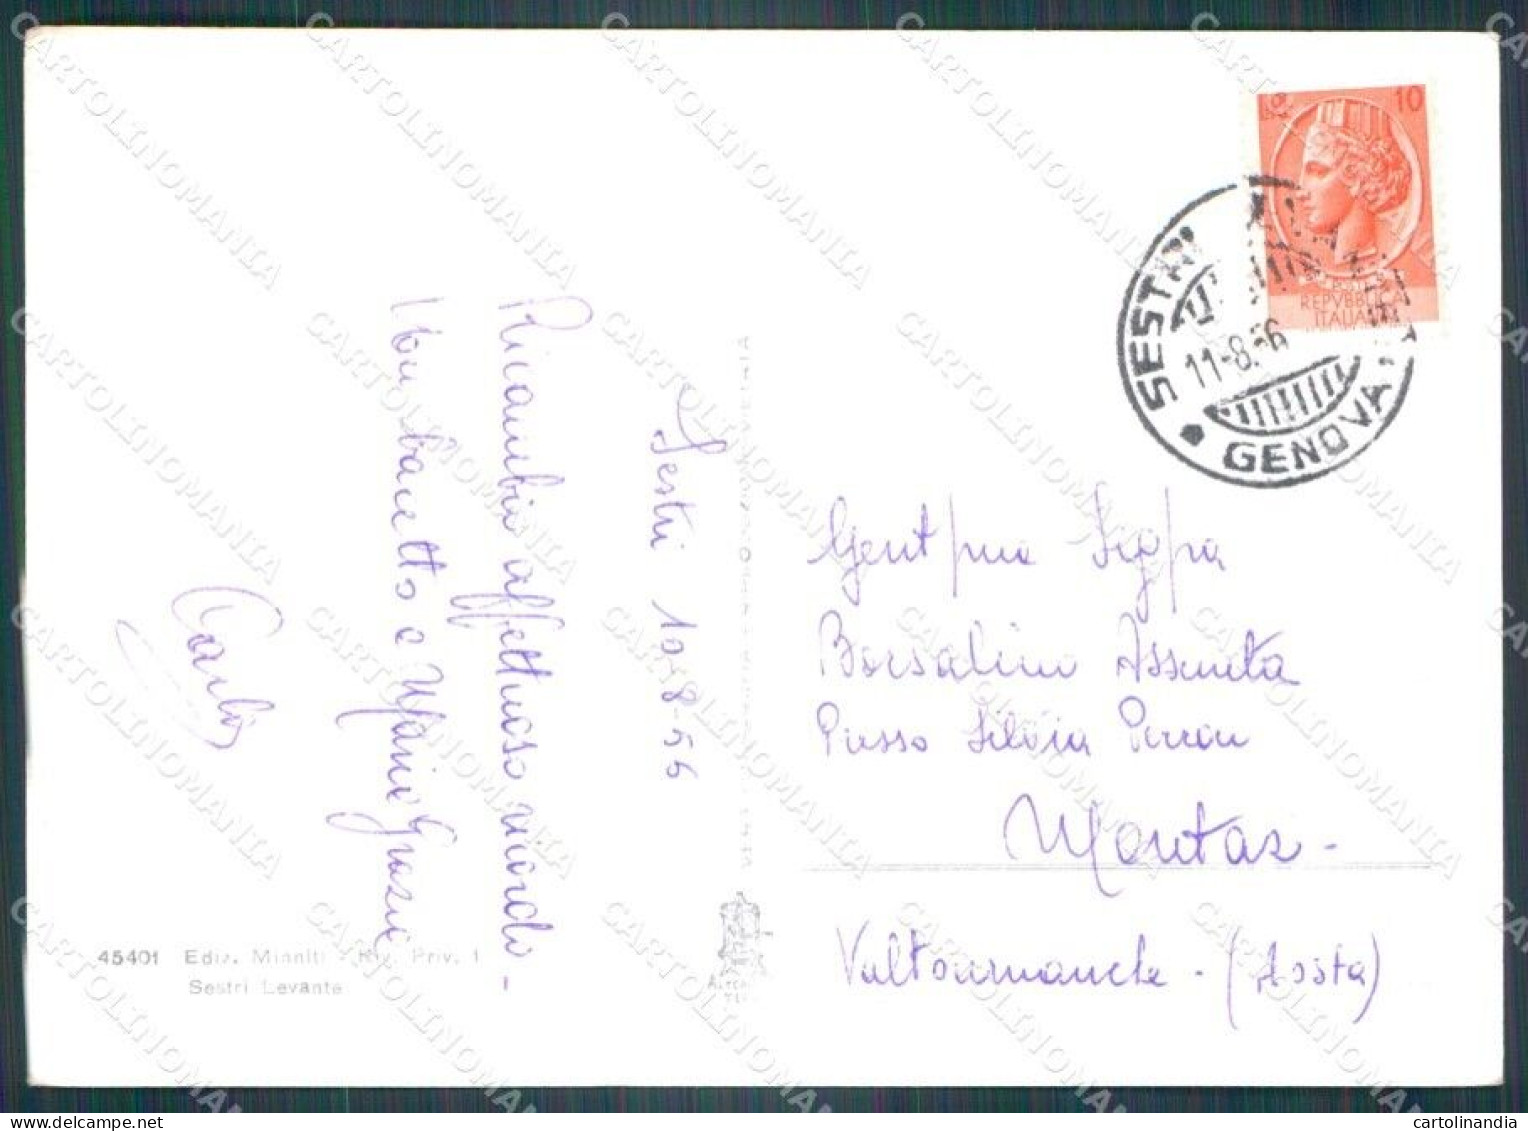 Sestri 10-8-56
Ricambio affettuoso ricordo -
1 bacetto a Maria Grazia
Carlo
45401 Ediz. Minniti - Riv. Priv. 1
Sestri Levante
10
REPVBBLICA
ITALIANA
SESTRI LEVANTE
11-8.56
GENOVA
Gent/ma Sig/ra
Borsalino Assunta
Presso Silvia Perron
Montaz -
Valtournanche - (Aosta)
CARTOLINOMANIA
cartolinandia